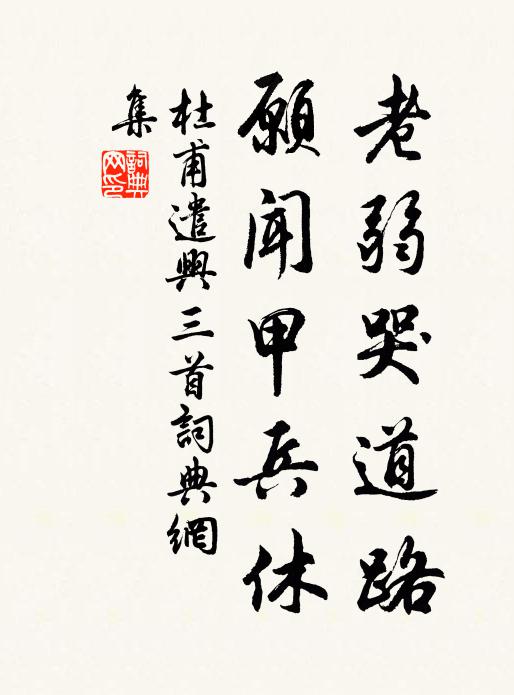 老弱哭道路
願聞甲兵休
杜甫遣興三首詞典網
集
詞典
网印